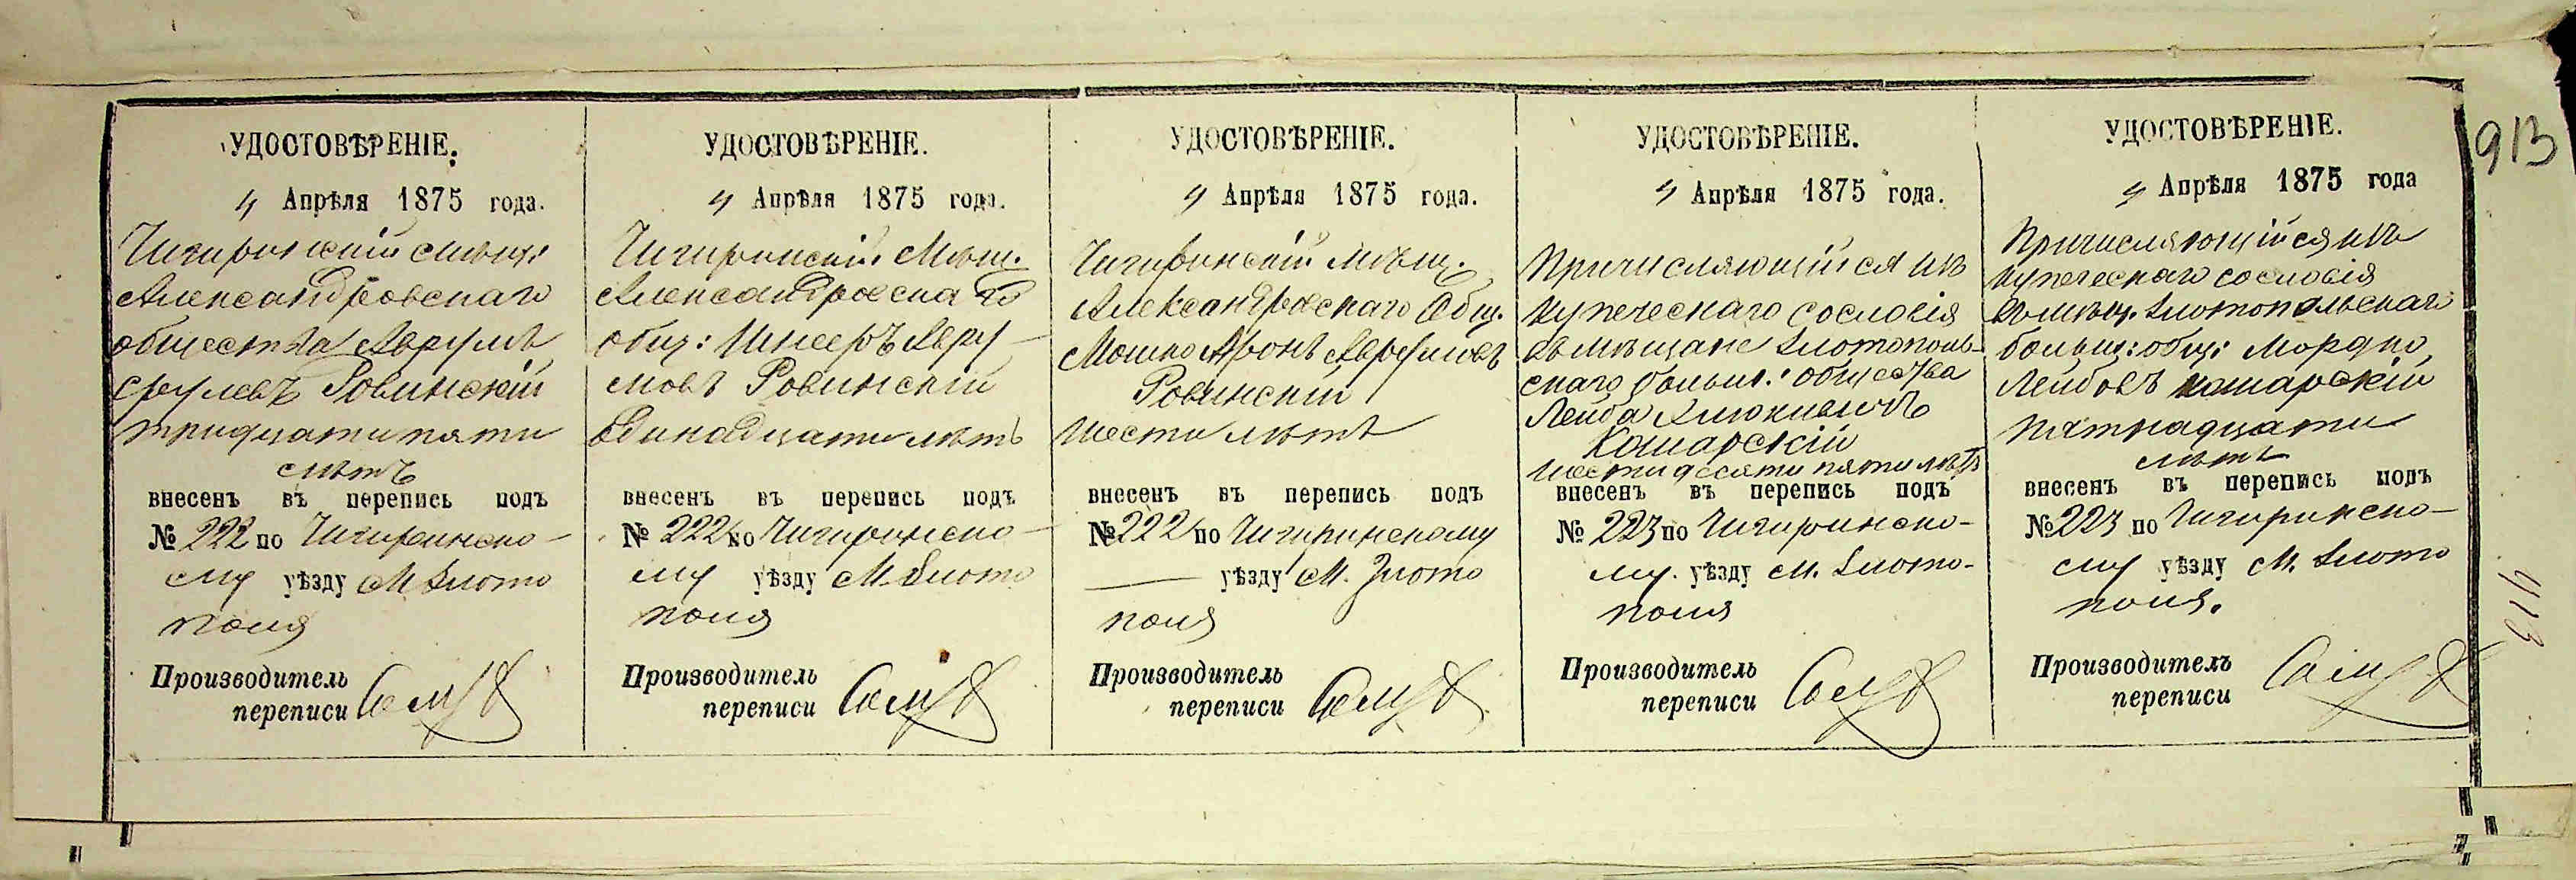 913
УДОСТОВѢРЕНІЕ.
4 Апрѣля 1875 года.
Чигиринскій мѣщ:
Александровскаго
общества Аврумъ
Срулевъ Ровинскій
тридцати пяти
лѣтъ
внесенъ въ перепись подъ
№ 222 по Чигиринско-
му уѣзду М. Злото
поля
Производитель
переписи
УДОСТОВѢРЕНІЕ.
4 Апрѣля 1875 года.
Чигиринскій Мѣщ.
Александровскаго
общ: Авру-
мовъ Ровинскій
Одинадцати лѣтъ
внесенъ въ перепись подъ
№ 222 по Чигиринско-
му уѣзду М. Злото
поля
Производитель
переписи
УДОСТОВѢРЕНІЕ.
4 Апрѣля 1875 года.
Чигиринскій мѣщ.
Александровскаго Общ.
Мошко Аронъ Аврумовъ
Ровинскій
Шести лѣтъ
внесенъ въ перепись подъ
№ 222 по Чигиринскому
уѣзду М. Злото
поля
Производитель
переписи
УДОСТОВѢРЕНІЕ.
4 Апрѣля 1875 года.
Причисляющійся изъ
купеческаго сословія
въ мѣщане Злотополь-
скаго больш.: общества
Лейба
Комарскій
шестидесяти пяти лѣтъ
внесенъ въ перепись подъ
№ 223 по Чигиринско-
му. уѣзду М. Злото-
поля
Производитель
переписи
УДОСТОВѢРЕНІЕ.
4 Апрѣля 1875 года
Причисляющійся изъ
купеческаго сословія
въ мѣщ. Злотопольскаго
больш: общ: Мордко
Лейбовъ Комарскій
пятнадцати
лѣтъ
внесенъ въ перепись подъ
№ 223 по Чигиринско-
му уѣзду М. Злото
поля.
Производитель
переписи
413